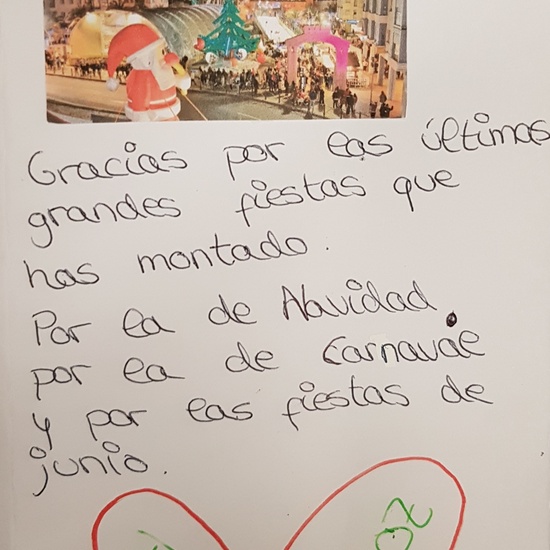 Gracias por las últimas
grandes fiestas que
has montado.
Por la de Navidad,
por la de Carnaval
y por las fiestas de
junio.